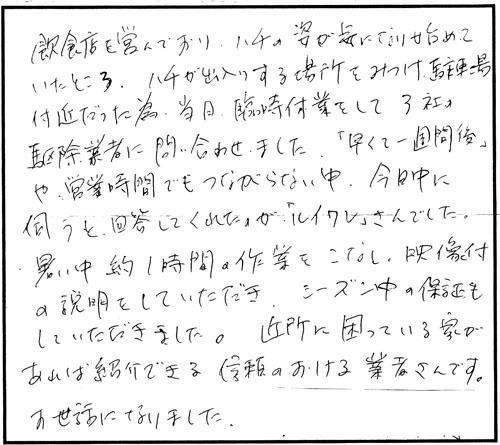 飲食店を営んでおり、ハチの姿が気になり始めて
いたところ、ハチが出入りする場所をみつけ、駐車場
付近だった為、当日、臨時休業をして3社の
駆除業者に問い合わせました。「早くて一週間後」
や、営業時間でもつながらない中、今日中に
伺うと回答してくれたのが「ルイワレ」さんでした。
暑い中約1時間の作業をこなし、映像付
の説明をしていただき、シーズン中の保証も
していただきました。近所に困っている家が
あれば紹介できる信頼のおける業者さんです。
お世話になりました。